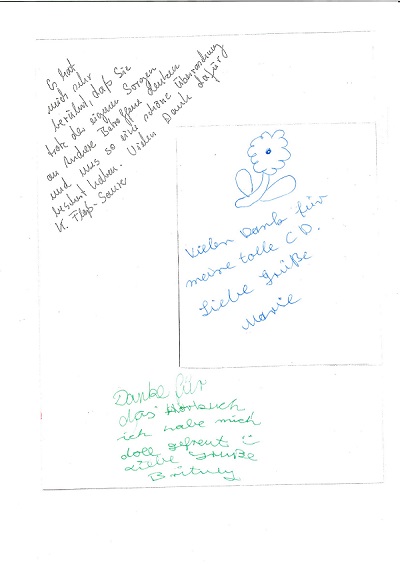 Es hat
mich sehr
berührt, daß Sie
trotz der eigenen Sorgen
an andere Betroffene denken
und uns so eine schöne Überraschung
beschert haben. Vielen Dank dafür,
K.
Vielen Dank für
meine tolle CD.
Liebe Grüße
Marie
Danke für
das Hörbuch
ich habe mich
doll gefreut
Liebe Grüße
Britney